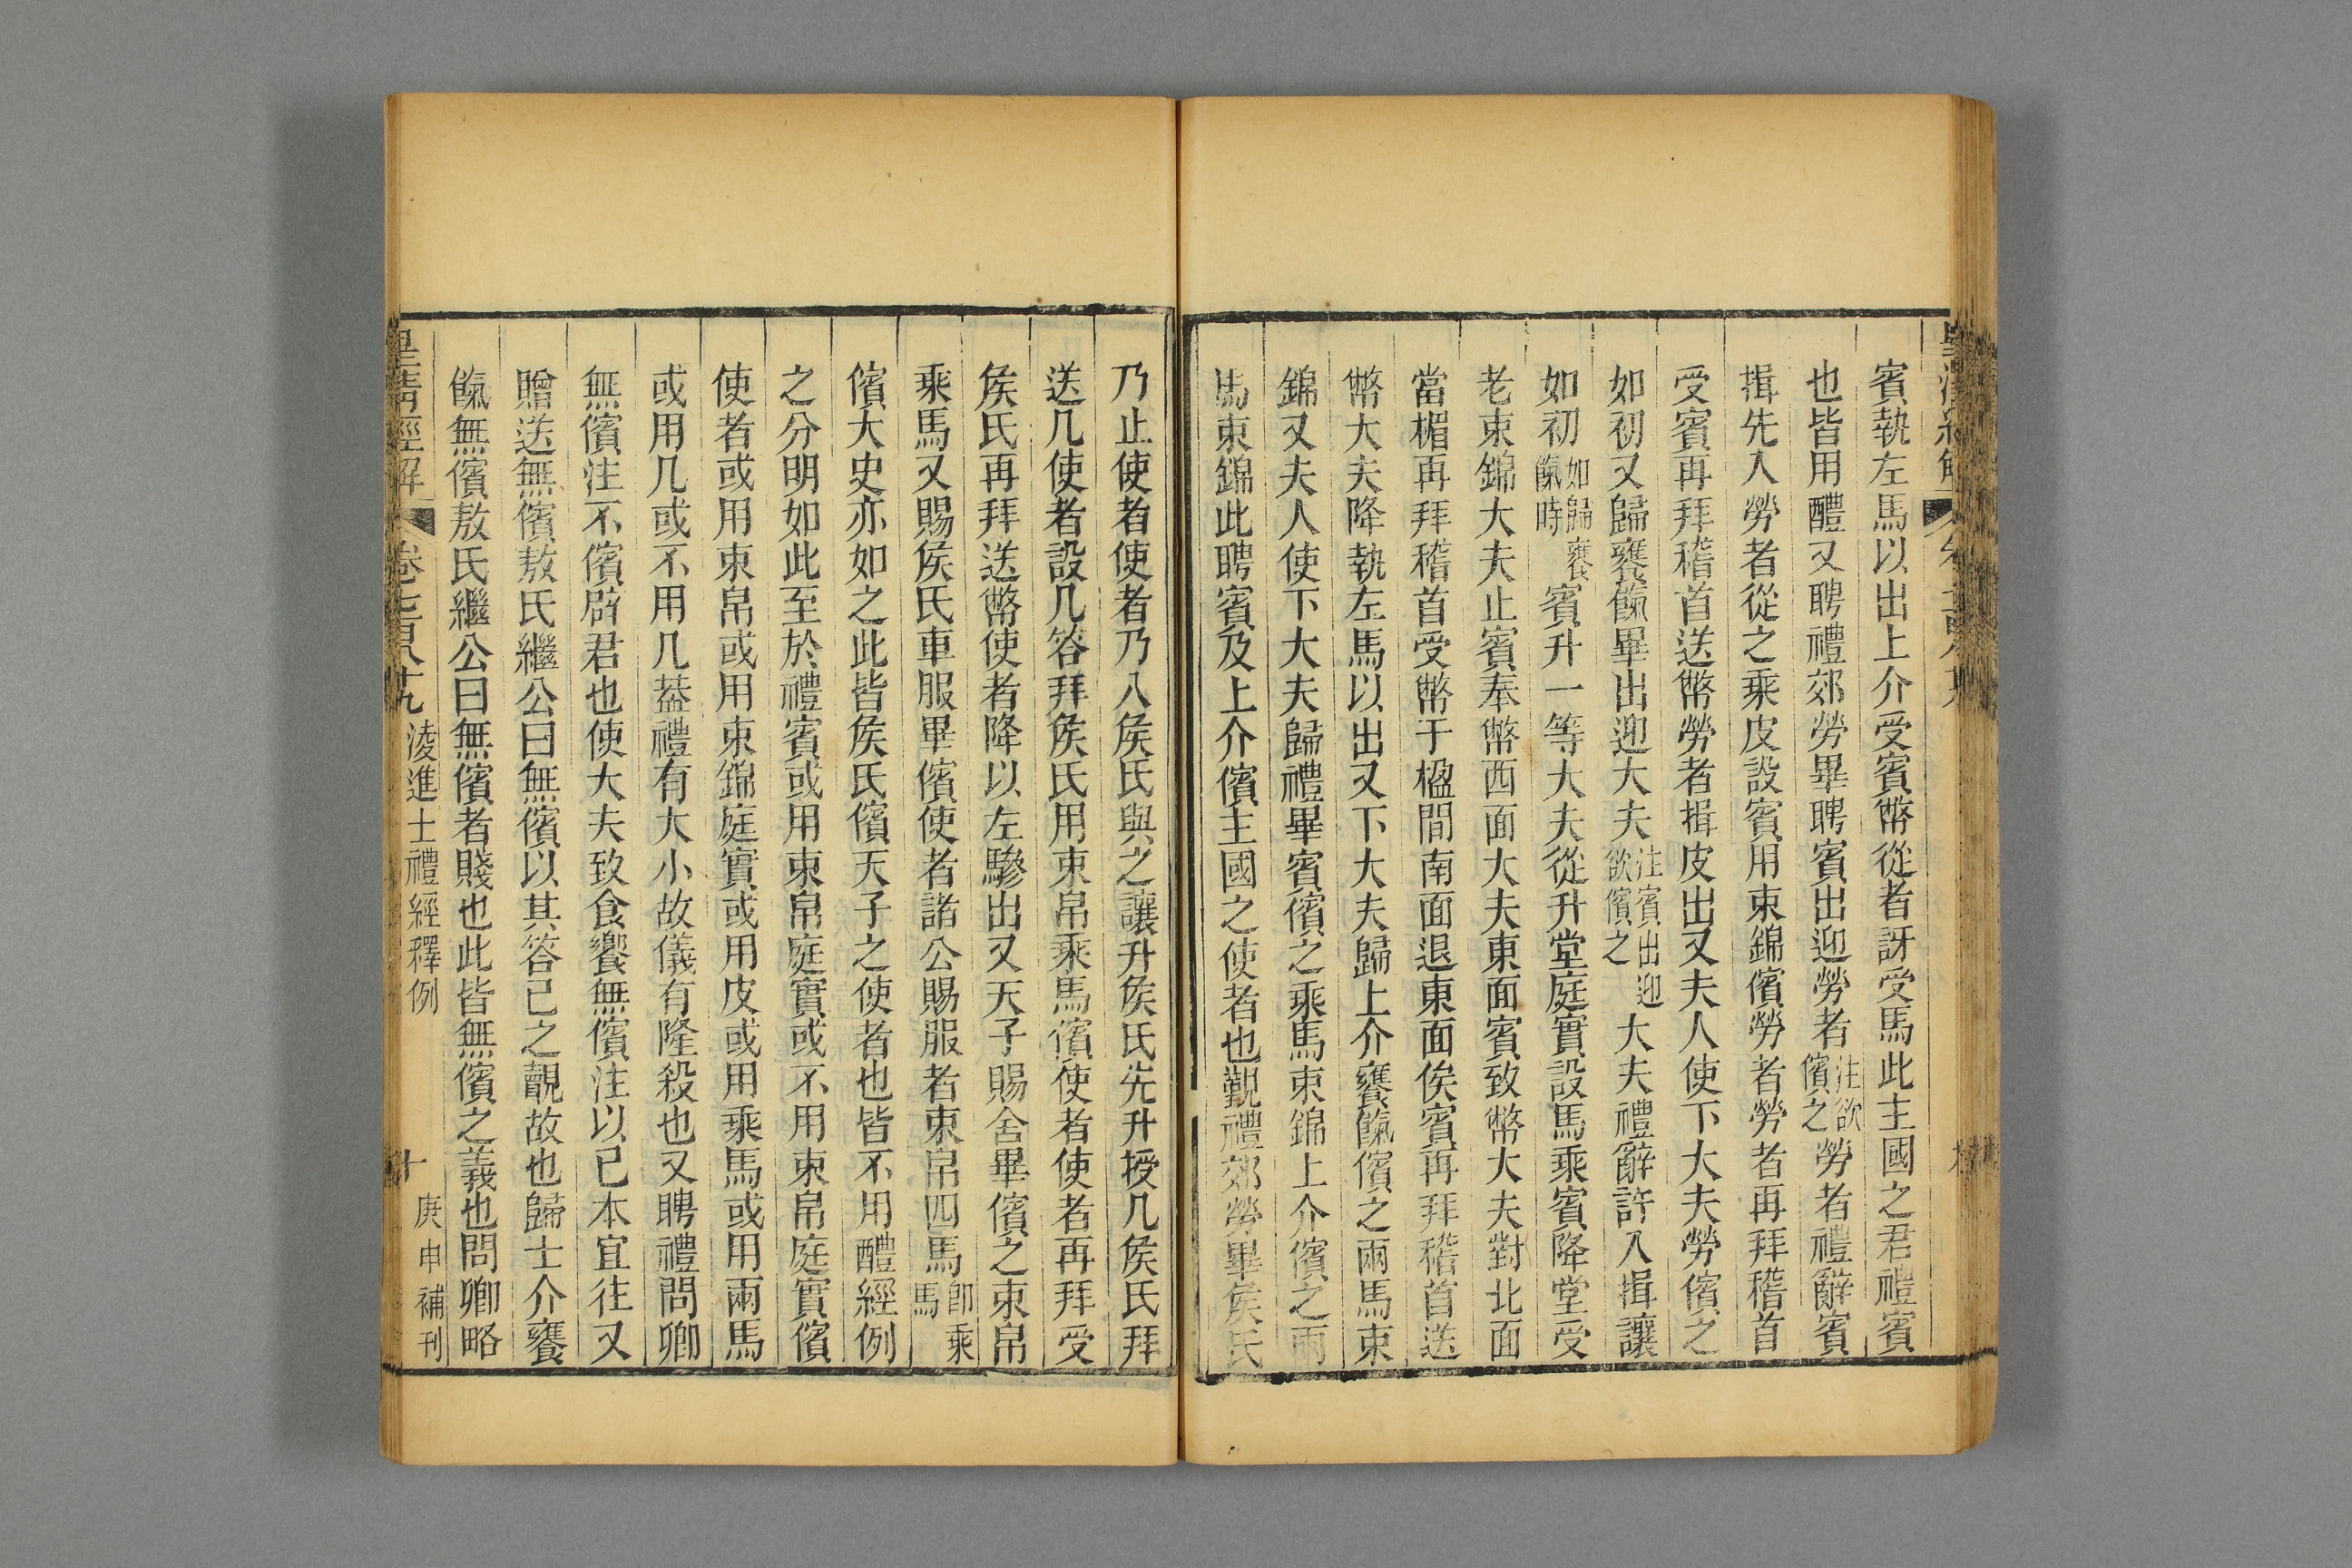 賓執左馬以出上介受賓幣從者訝受馬此主國之君禮賓
也皆用醴又聘禮郊勞畢聘賓出迎勞者注欲儐之勞者禮辭賓
揖先入勞者從之乘皮設賓用束錦儐勞者勞者再拜稽首
受賓再拜稽首送幣勞者揖皮出又夫人使下大夫勞儐之
如初又歸饔餼畢出迎大夫注賓出迎欲儐之大夫禮辭許入揖讓
如初如歸饔餼時賓升一等大夫從升堂庭實設馬乘賓降堂受
老束錦大夫止賓奉幣西面大夫東面賓致幣大夫對北面
當楣再拜稽首受幣于楹間南面退東面俟賓再拜稽首送
幣大夫降執左馬以出又下大夫歸上介饔餼儐之兩馬束
錦又夫人使下大夫歸禮畢賓儐之乘馬束錦上介儐之兩
馬束錦此聘賓及上介儐主國之使者也覲禮郊勞畢侯氏
乃止使者使者乃入侯氏與之讓升侯氏先升授几侯氏拜
送几使者設几答拜侯氏用束帛乘馬儐使者使者再拜受
侯氏再拜送幣使者降以左驂出又天子賜舍畢儐之束帛
乘馬又賜侯氏車服畢儐使者諸公賜服者束帛四馬即乘馬
儐大史亦如之此皆侯氏儐天子之使者也皆不用醴經例
之分明如此至於禮賓或用束帛庭實或不用束帛庭實儐
使者或用束帛或用束錦庭實或用皮或用乘馬或用兩馬
或用几或不用几葢禮有大小故儀有隆殺也又聘禮問卿
無儐注不儐辟君也使大夫致食饗無儐注以已本宜往又
贈送無儐敖氏繼公曰無儐以其答已之覿故也歸士介饔
餼無儐敖氏繼公曰無儐者賤也此皆無儐之義也問卿略
皇清經解 卷七百八十九 淩進士禮經釋例 十 庚申補刊